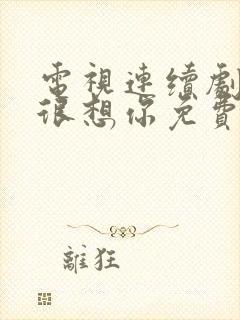 電視連續劇
很想你免費
離狂